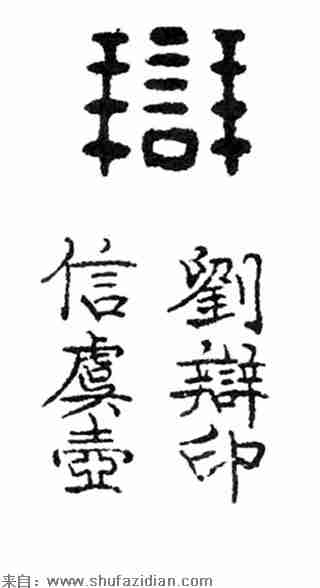 辯
劉辯印
信虞壺
来自：www.shufazidian.com